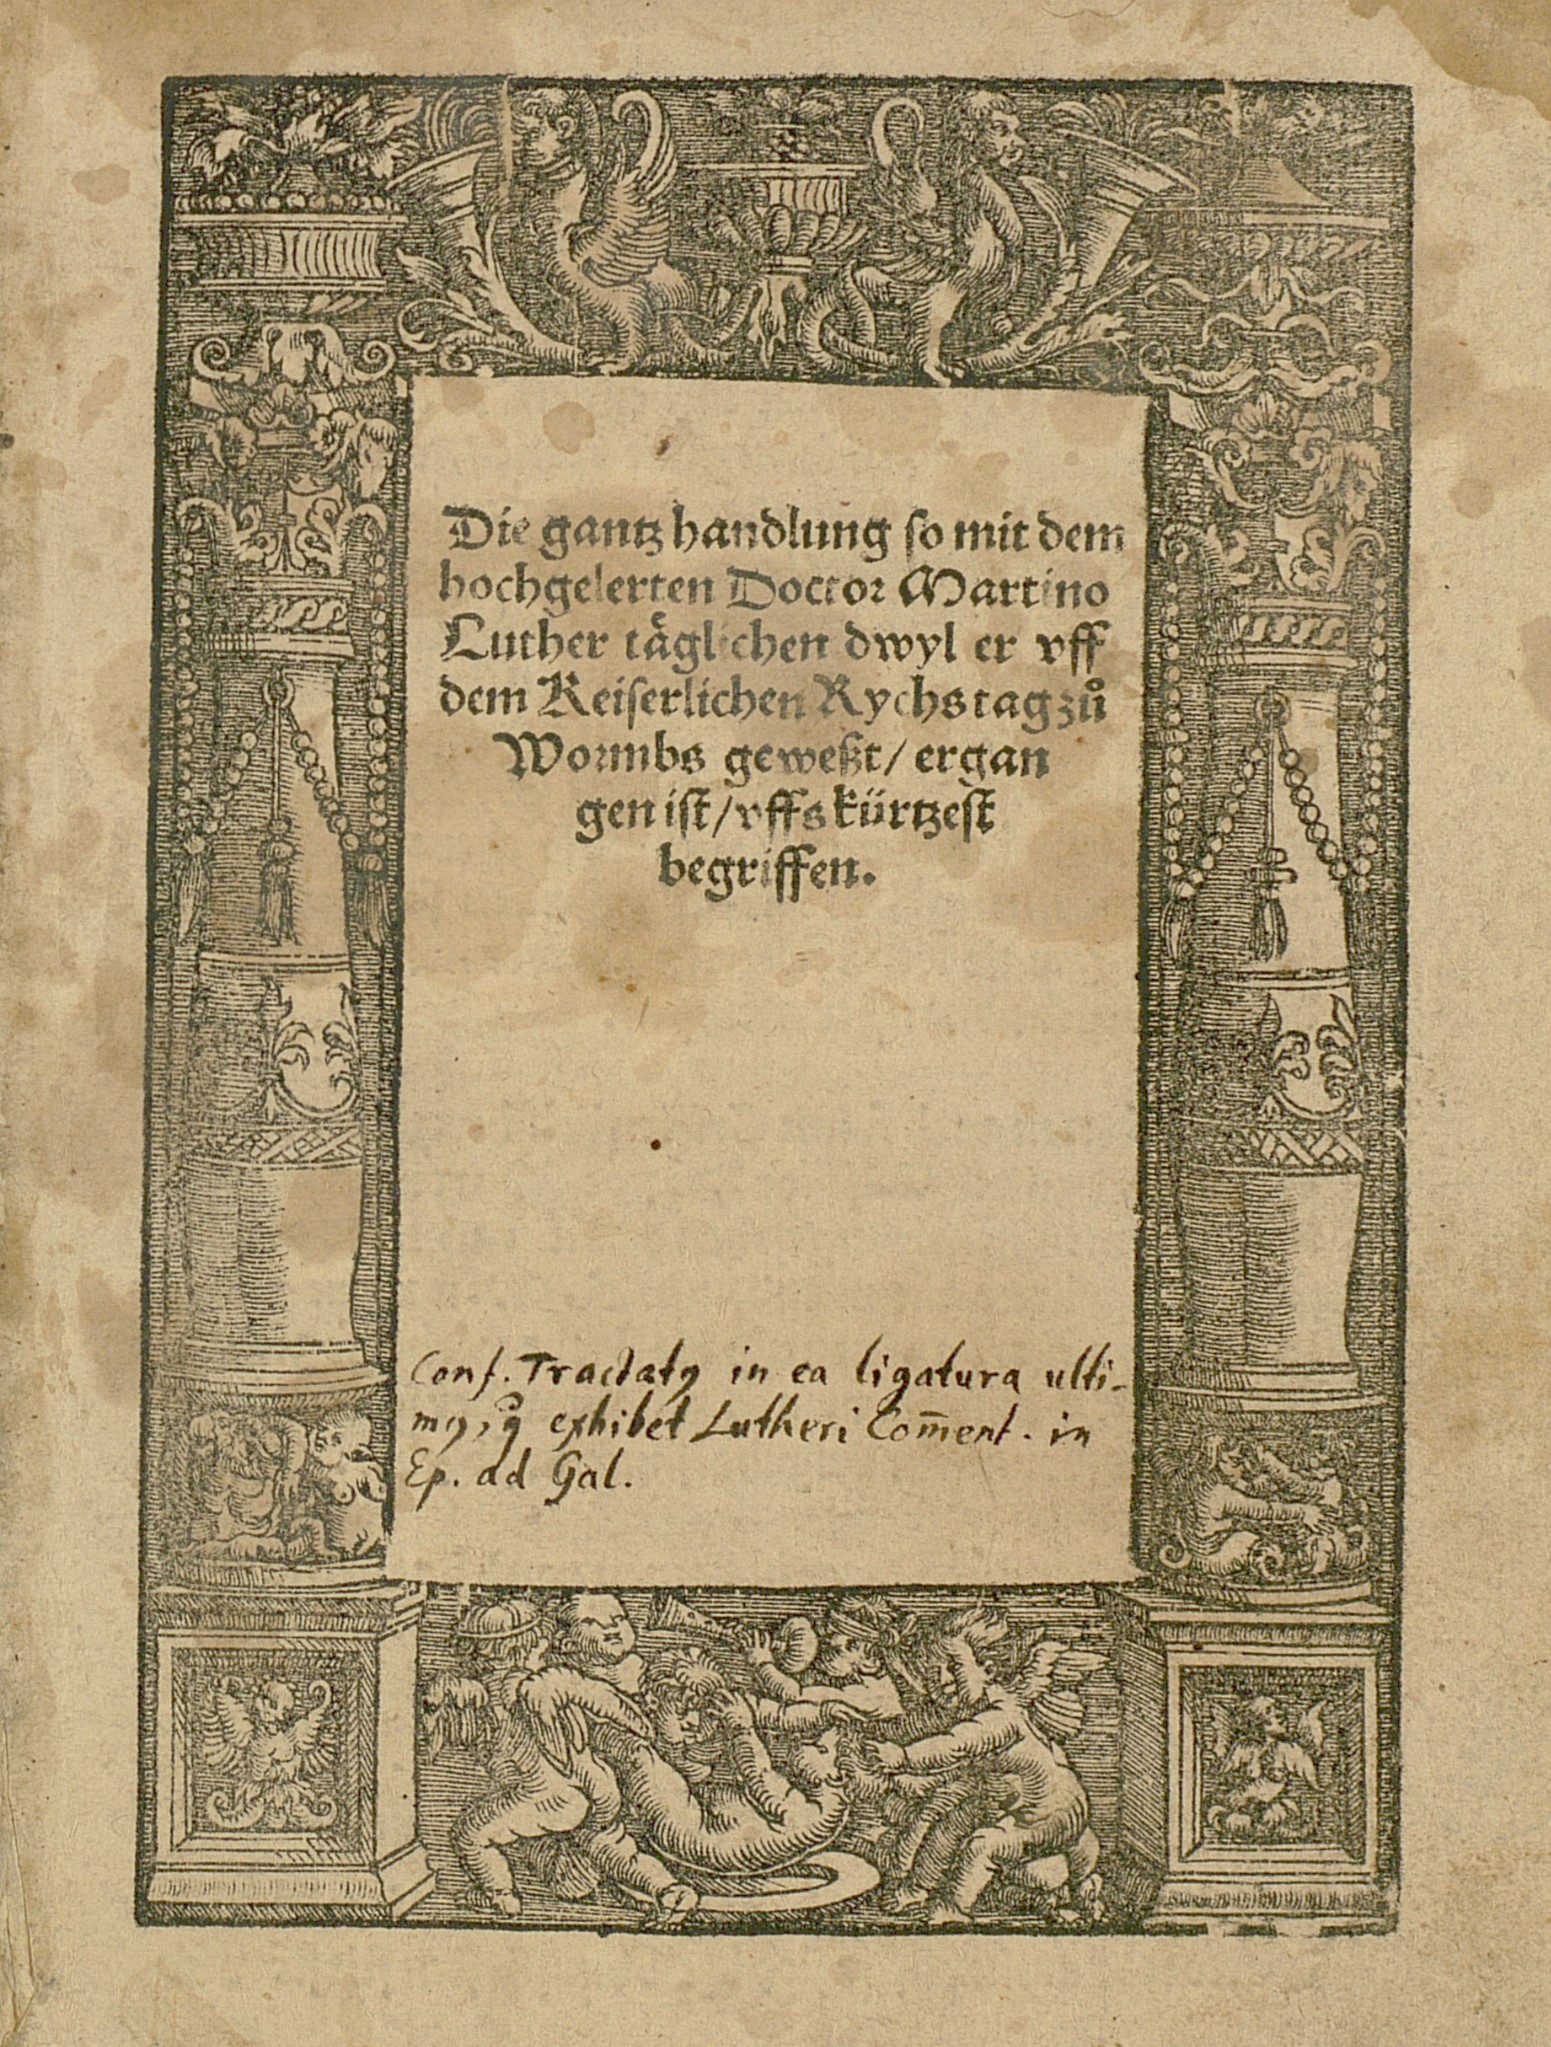 Die gantz handlung so mit dem
hochgelerten Doctor Martino
Luther täglichen dwyl er vff
dem Keiserlichen Rychstag zuͦ
Wormbs geweßt / ergan
gen ist / vffs kürtzest
begriffen.
Conf. Tractatꝰ in ea ligatura ulti-
mꝰ, q̃ exhibet Lutheri Com̄ent. in
Ep. ad Gal.